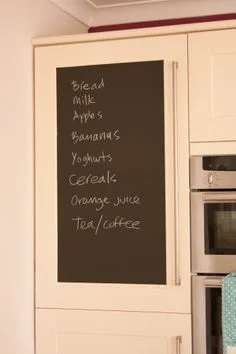 Bread
Milk
Apples
Bananas
Yoghurts
Cereals
Orange juice
Tea/coffee